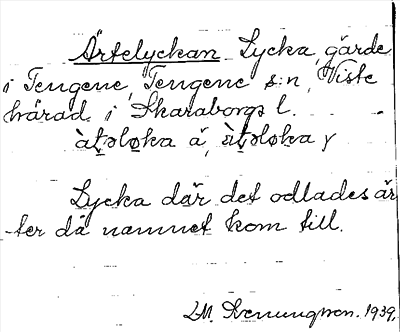 Ärtelyckan Lycka, gärde
i Tengene, Tengene s:n, Viste
härad i Skaraborgs l.
àt̠əlo̠ka ä, ǜt̠əlo̠ka y
Lycka där det odlades är
-ter då namnet kom till.
1939.